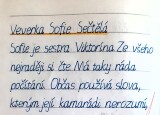 Veverka Sofie Sečtělá
Sofie je sestra Viktorína Ze všeho
nejraději si čte. Má taky ráda
počítání. Občas používá slova,
kterým její kamarádi nerozumí,